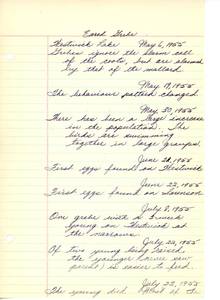 Eared Grebe
Westwick Lake May 6, 1955
Grebes ignore the alarm call
of the coots, but are alarmed
by that of the mallard.
May 19, 1955
The behaviour pattern changed
May 30, 1955
There has been a large increase
in the population. The
birds are swimming
together in large groups.
June 20, 1955
First eggs found on Westwick
June 22, 1955
First eggs found on
July 8, 1955
One grebe with a
young on Westwick at
the narrows.
July 20, 1955
Of two young being raised
the younger
parent) is easier to feed.
July 22, 1955
The young did